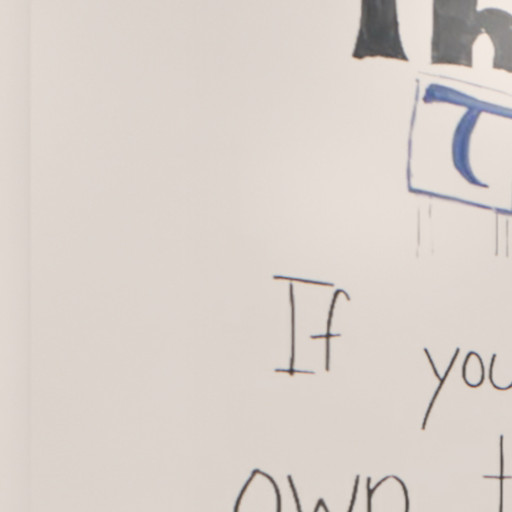 Th
T
If you
own t